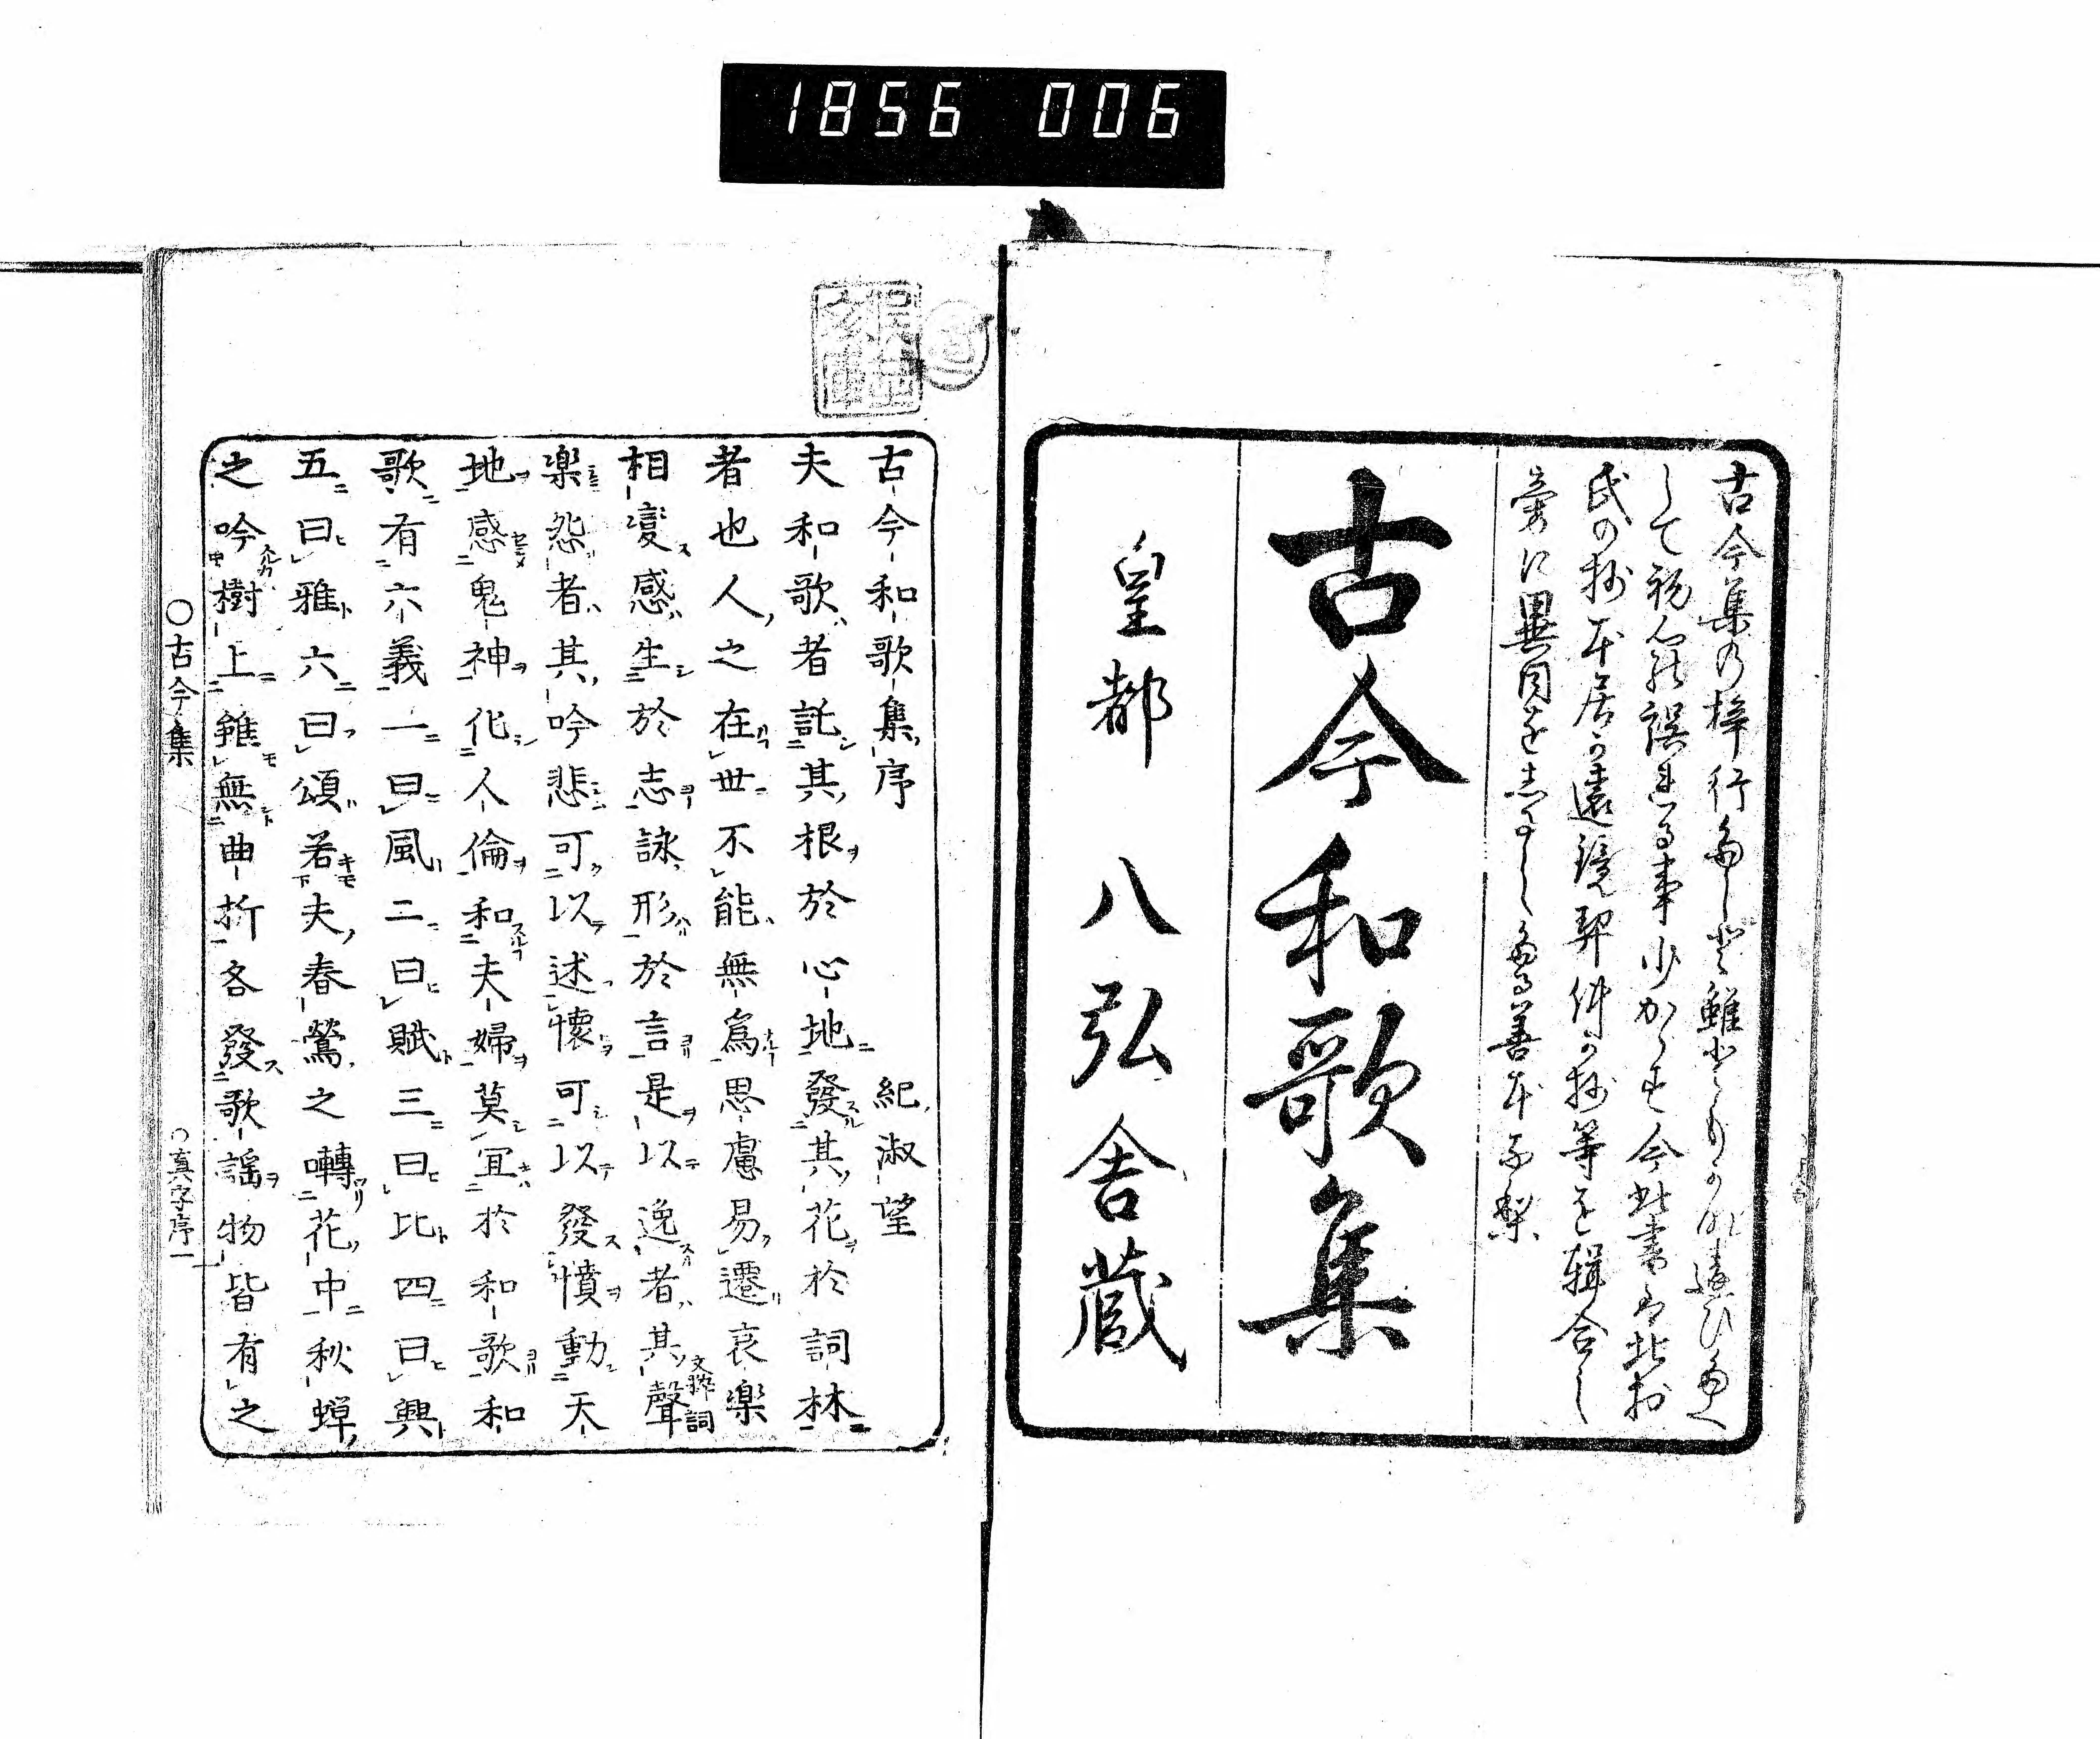 1856 006
古今集の梓行多しと雖とも
して初心の誤る事少からす今此書は北村
氏の抄本居の遠鏡契沖の抄等を輯合し
旁に異同をしるしたる善本
古今和歌集
皇都 八弘舎蔵
古今和歌集序 紀淑望
夫和歌者託其根於心地發其花於詞林
者也人之在世不能無爲思慮易遷哀樂
相變感生於志詠形於言是以逸者其聲
文粹詞
樂怨者其吟悲可以述懷可以發憤動天
地感鬼神化人倫和夫婦莫宜於和歌和
歌有六義一曰風二曰賦三曰比四曰興
五曰雅六曰頌若夫春鶯之囀花中秋蟬
之吟樹上雖無曲折各發歌謠物皆有之
○古今集 ○真字序一